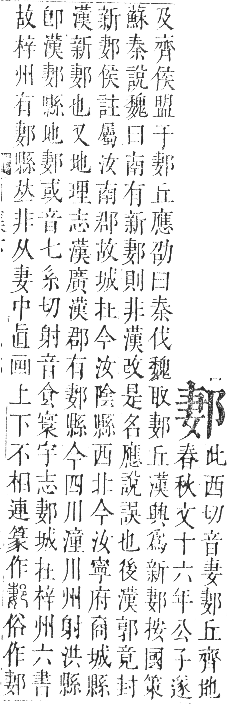 郪
此西切音妻郪丘齊地
春秋文十六年公子遂
及齊侯盟于郪丘應劭曰秦伐魏取郪丘漢興爲新郪按國策
蘇秦說魏曰南有新郪則非漢改是名應說誤也後漢郭竟封
新郪侯註屬汝南郡故城在今汝陰縣西北今汝寧府商城縣
漢新郪也又地理志漢廣漢郡有郪縣今四川潼川州射洪縣
卽漢郪縣地郪或音七系切射音食寰宇志郪城在梓州六書
故梓州有郪縣𠀤非从妻中直画上下不相連篆作俗作郪